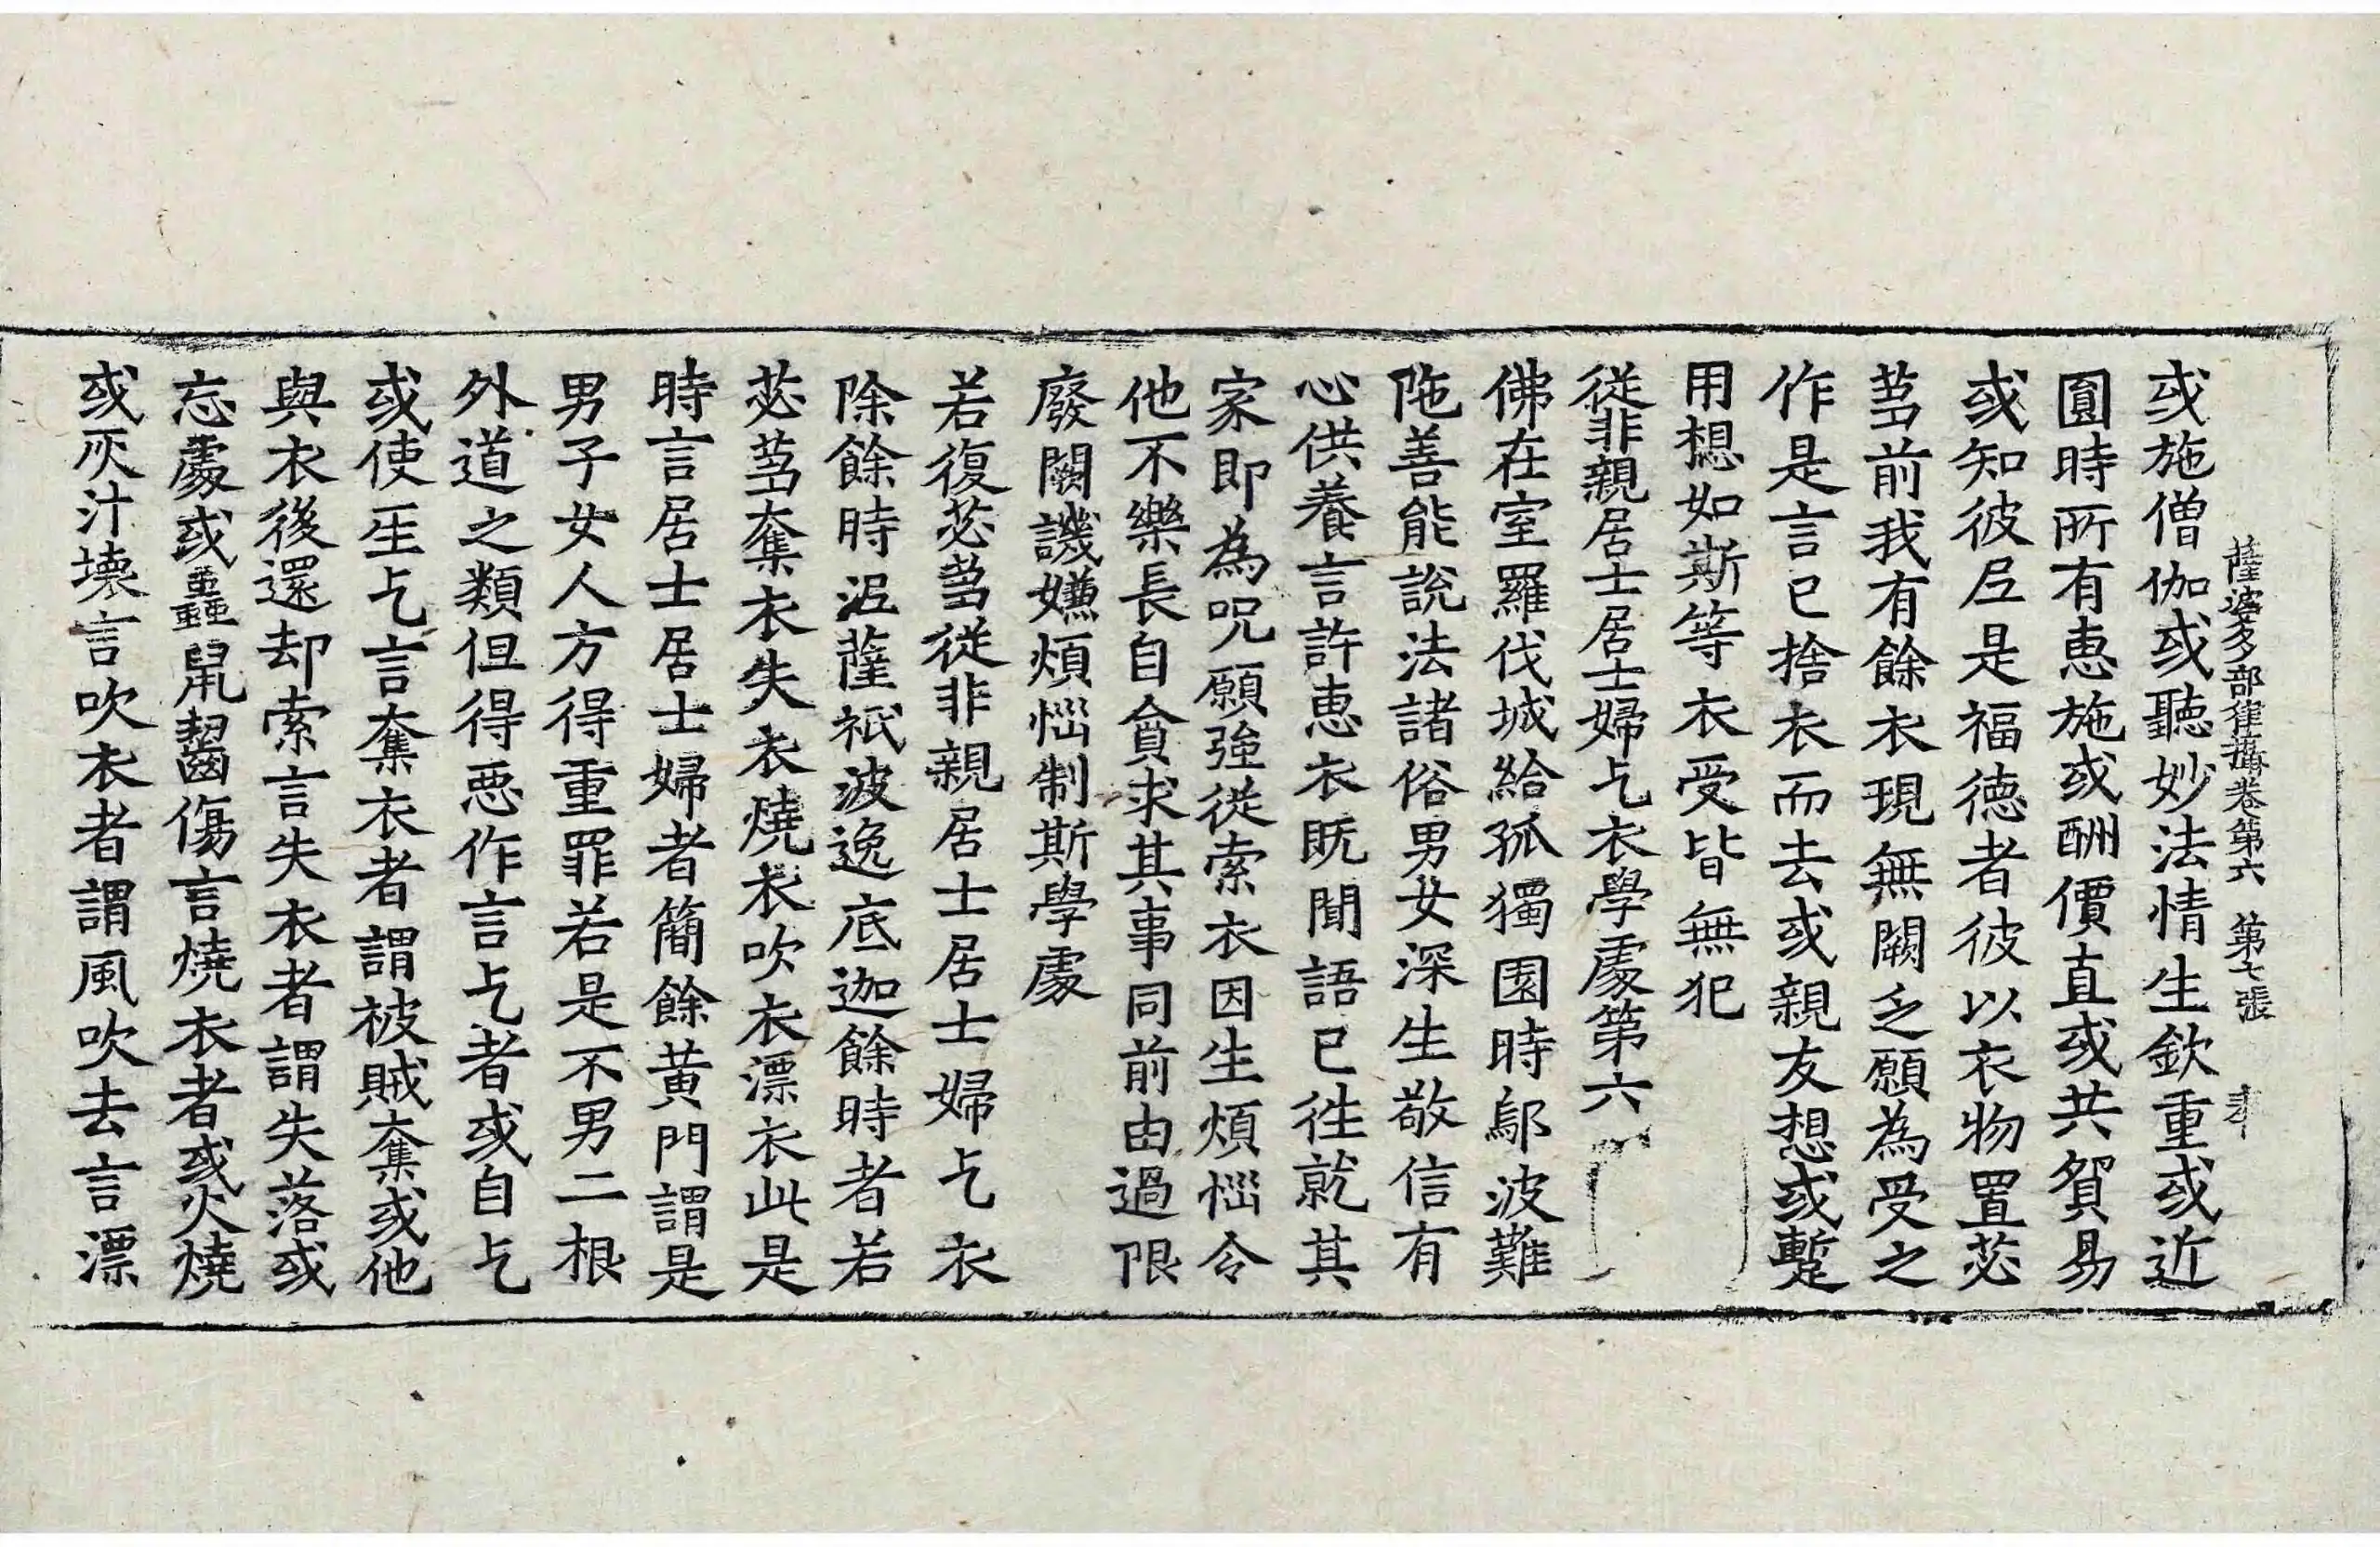 薩婆多部律攝卷第六 第七張 隶
或施僧伽或聽妙法情生欽重或近
圓時所有恵施或酬價直或共貿易
或知彼𡰱是福德者彼以衣物置苾
蒭前我有餘衣現無闕乏願為受之
作是言已捨衣而去或親友想或蹔
用想如斯等衣受皆無犯
從非親居士居士婦乞衣學處第六
佛在室羅伐城給孤獨園時鄔波難
陁善能說法諸俗男女深生敬信有
心供養言許恵衣既聞語已徃就其
家即為呪願強從索衣因生煩惱令
他不樂長自貪求其事同前由過限
廢闕譏嫌煩惱制斯學處
若復苾蒭從非親居士居士婦乞衣
除餘時泥薩祇波逸底迦餘時者若
苾蒭奪衣失衣燒衣吹衣漂衣此是
時言居士居士婦者簡餘黃門謂是
男子女人方得重罪若是不男二根
外道之類但得惡作言乞者或自乞
或使𤯔乞言奪衣者謂被賊奪或他
與衣後還却索言失衣者謂失落或
忘處或蟲鼠齧傷言燒衣者或火燒
或灰汁壞言吹衣者謂風吹去言漂